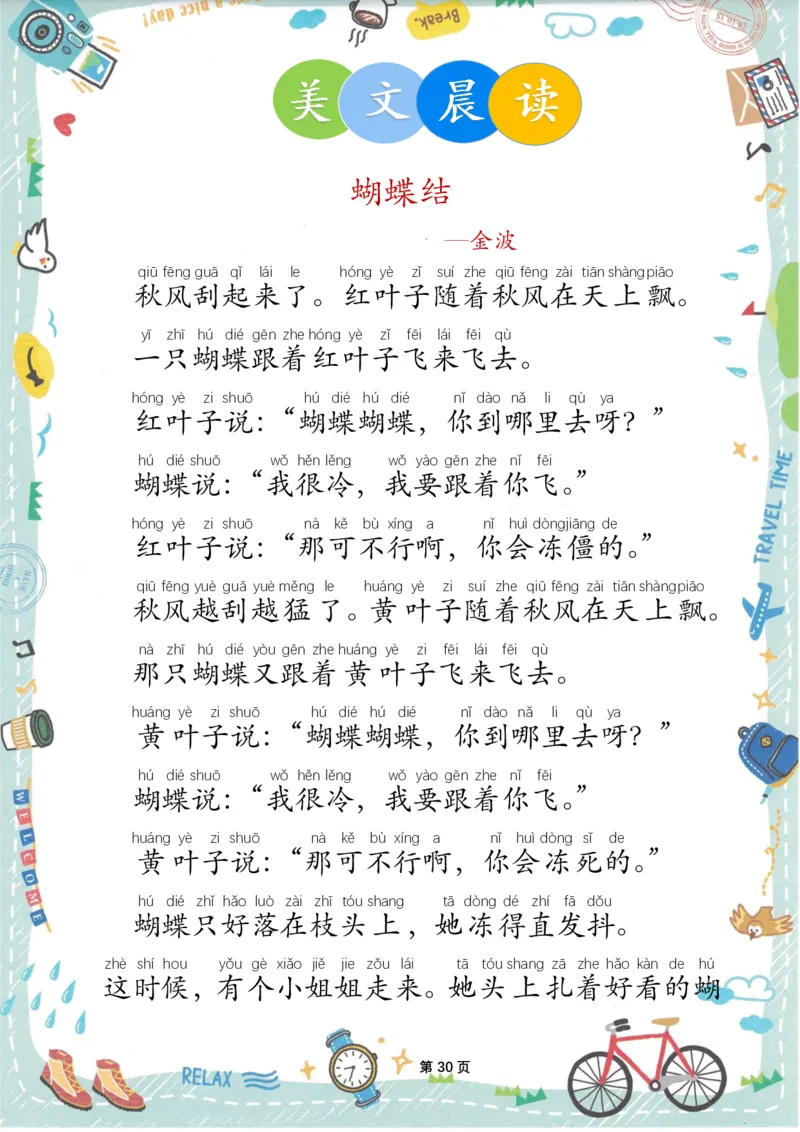 Have a nice day!
Break.
美文晨读
蝴蝶结
—金波
qiū fēng guā qǐ lái le hóng yè zǐ suí zhe qiū fēng zài tiān shàng piāo
秋风刮起来了。红叶子随着秋风在天上飘。
yī zhī hú dié gēn zhe hóng yè zǐ fēi lái fēi qù
一只蝴蝶跟着红叶子飞来飞去。
hóng yè zi shuō hú dié hú dié nǐ dào nǎ li qù ya
红叶子说：“蝴蝶蝴蝶，你到哪里去呀？”
hú dié shuō wǒ hěn lěng wǒ yào gēn zhe nǐ fēi
蝴蝶说：“我很冷，我要跟着你飞。”
hóng yè zi shuō nà kě bù xíng a nǐ huì dòng jiāng de
红叶子说：“那可不行啊，你会冻僵的。”
qiū fēng yuè guā yuè měng le huáng yè zi suí zhe qiū fēng zài tiān shàng piāo
秋风越刮越猛了。黄叶子随着秋风在天上飘。
nà zhī hú dié yòu gēn zhe huáng yè zi fēi lái fēi qù
那只蝴蝶又跟着黄叶子飞来飞去。
huáng yè zi shuō hú dié hú dié nǐ dào nǎ li qù ya
黄叶子说：“蝴蝶蝴蝶，你到哪里去呀？”
hú dié shuō wǒ hěn lěng wǒ yào gēn zhe nǐ fēi
蝴蝶说：“我很冷，我要跟着你飞。”
huáng yè zi shuō nà kě bù xíng a nǐ huì dòng sǐ de
黄叶子说：“那可不行啊，你会冻死的。”
hú dié zhǐ hǎo luò zài zhī tóu shang tā dòng dé zhí fā dǒu
蝴蝶只好落在枝头上，她冻得直发抖。
zhè shí hou yǒu gè xiǎo jiě jie zǒu lái tā tóu shang zā zhe hǎo kàn de hú
这时候，有个小姐姐走来。她头上扎着好看的蝴
TRAVEL TIME
WELCOME
RELAX
第 30 页